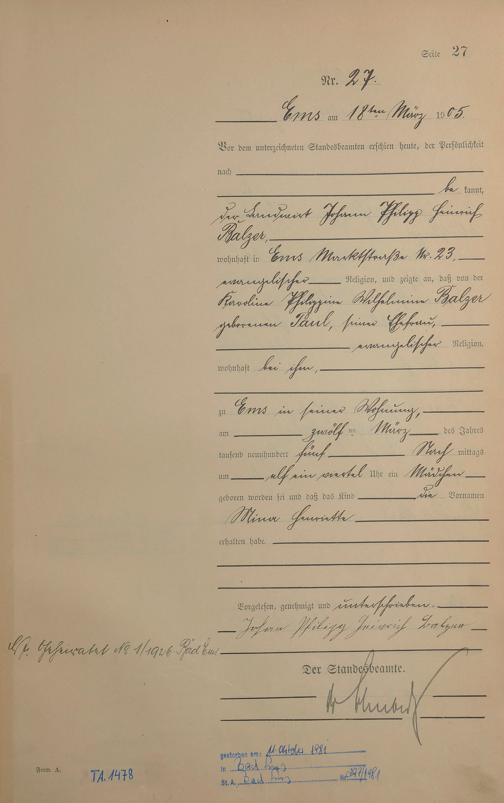 Seite 27
Nr. 27.
Ems am 18ten März 1905.
Vor dem unterzeichneten Standesbeamten erschien heute, der Persönlichkeit
nach
be kannt,
der Landwirt Johann Philipp Heinrich
Balzer,
wohnhaft in Ems Marktstraße Nr. 23,
evangelischer Religion, und zeigte an, daß von der
Karoline Philippine Wilhelmine Balzer
geborenen Paul, seiner Ehefrau,
evangelischer Religion,
wohnhaft bei ihm,
zu Ems in seiner Wohnung,
am zwölften März des Jahres
tausend neunhundert fünf Nach mittags
um elf ein viertel Uhr ein Mädchen
geboren worden sei und daß das Kind die Vornamen
Mina Henriette
erhalten habe.
Vorgelesen, genehmigt und unterschrieben.
Johann Philipp Heinrich Balzer
No 1/1926 Bad Ems
Der Standesbeamte.
gestorben am: 11. Oktober 1981
in Bad Ems
St.A. Bad Ems Nr. /1981
Form. A.
TA.1478